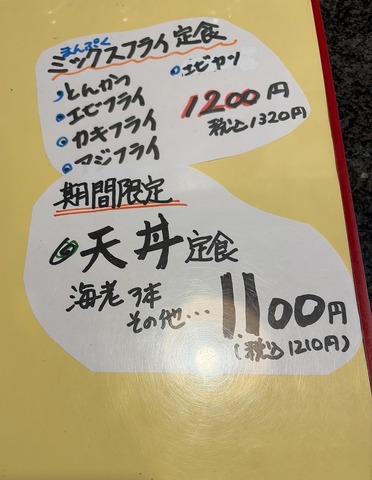 まんぷく
ミックスフライ定食
・とんかつ
・エビカツ
・エビフライ
・カキフライ
・アジフライ
1200円
税込1320円
期間限定
◎天丼定食
海老3本
その他…
1100円
(税込1210円)